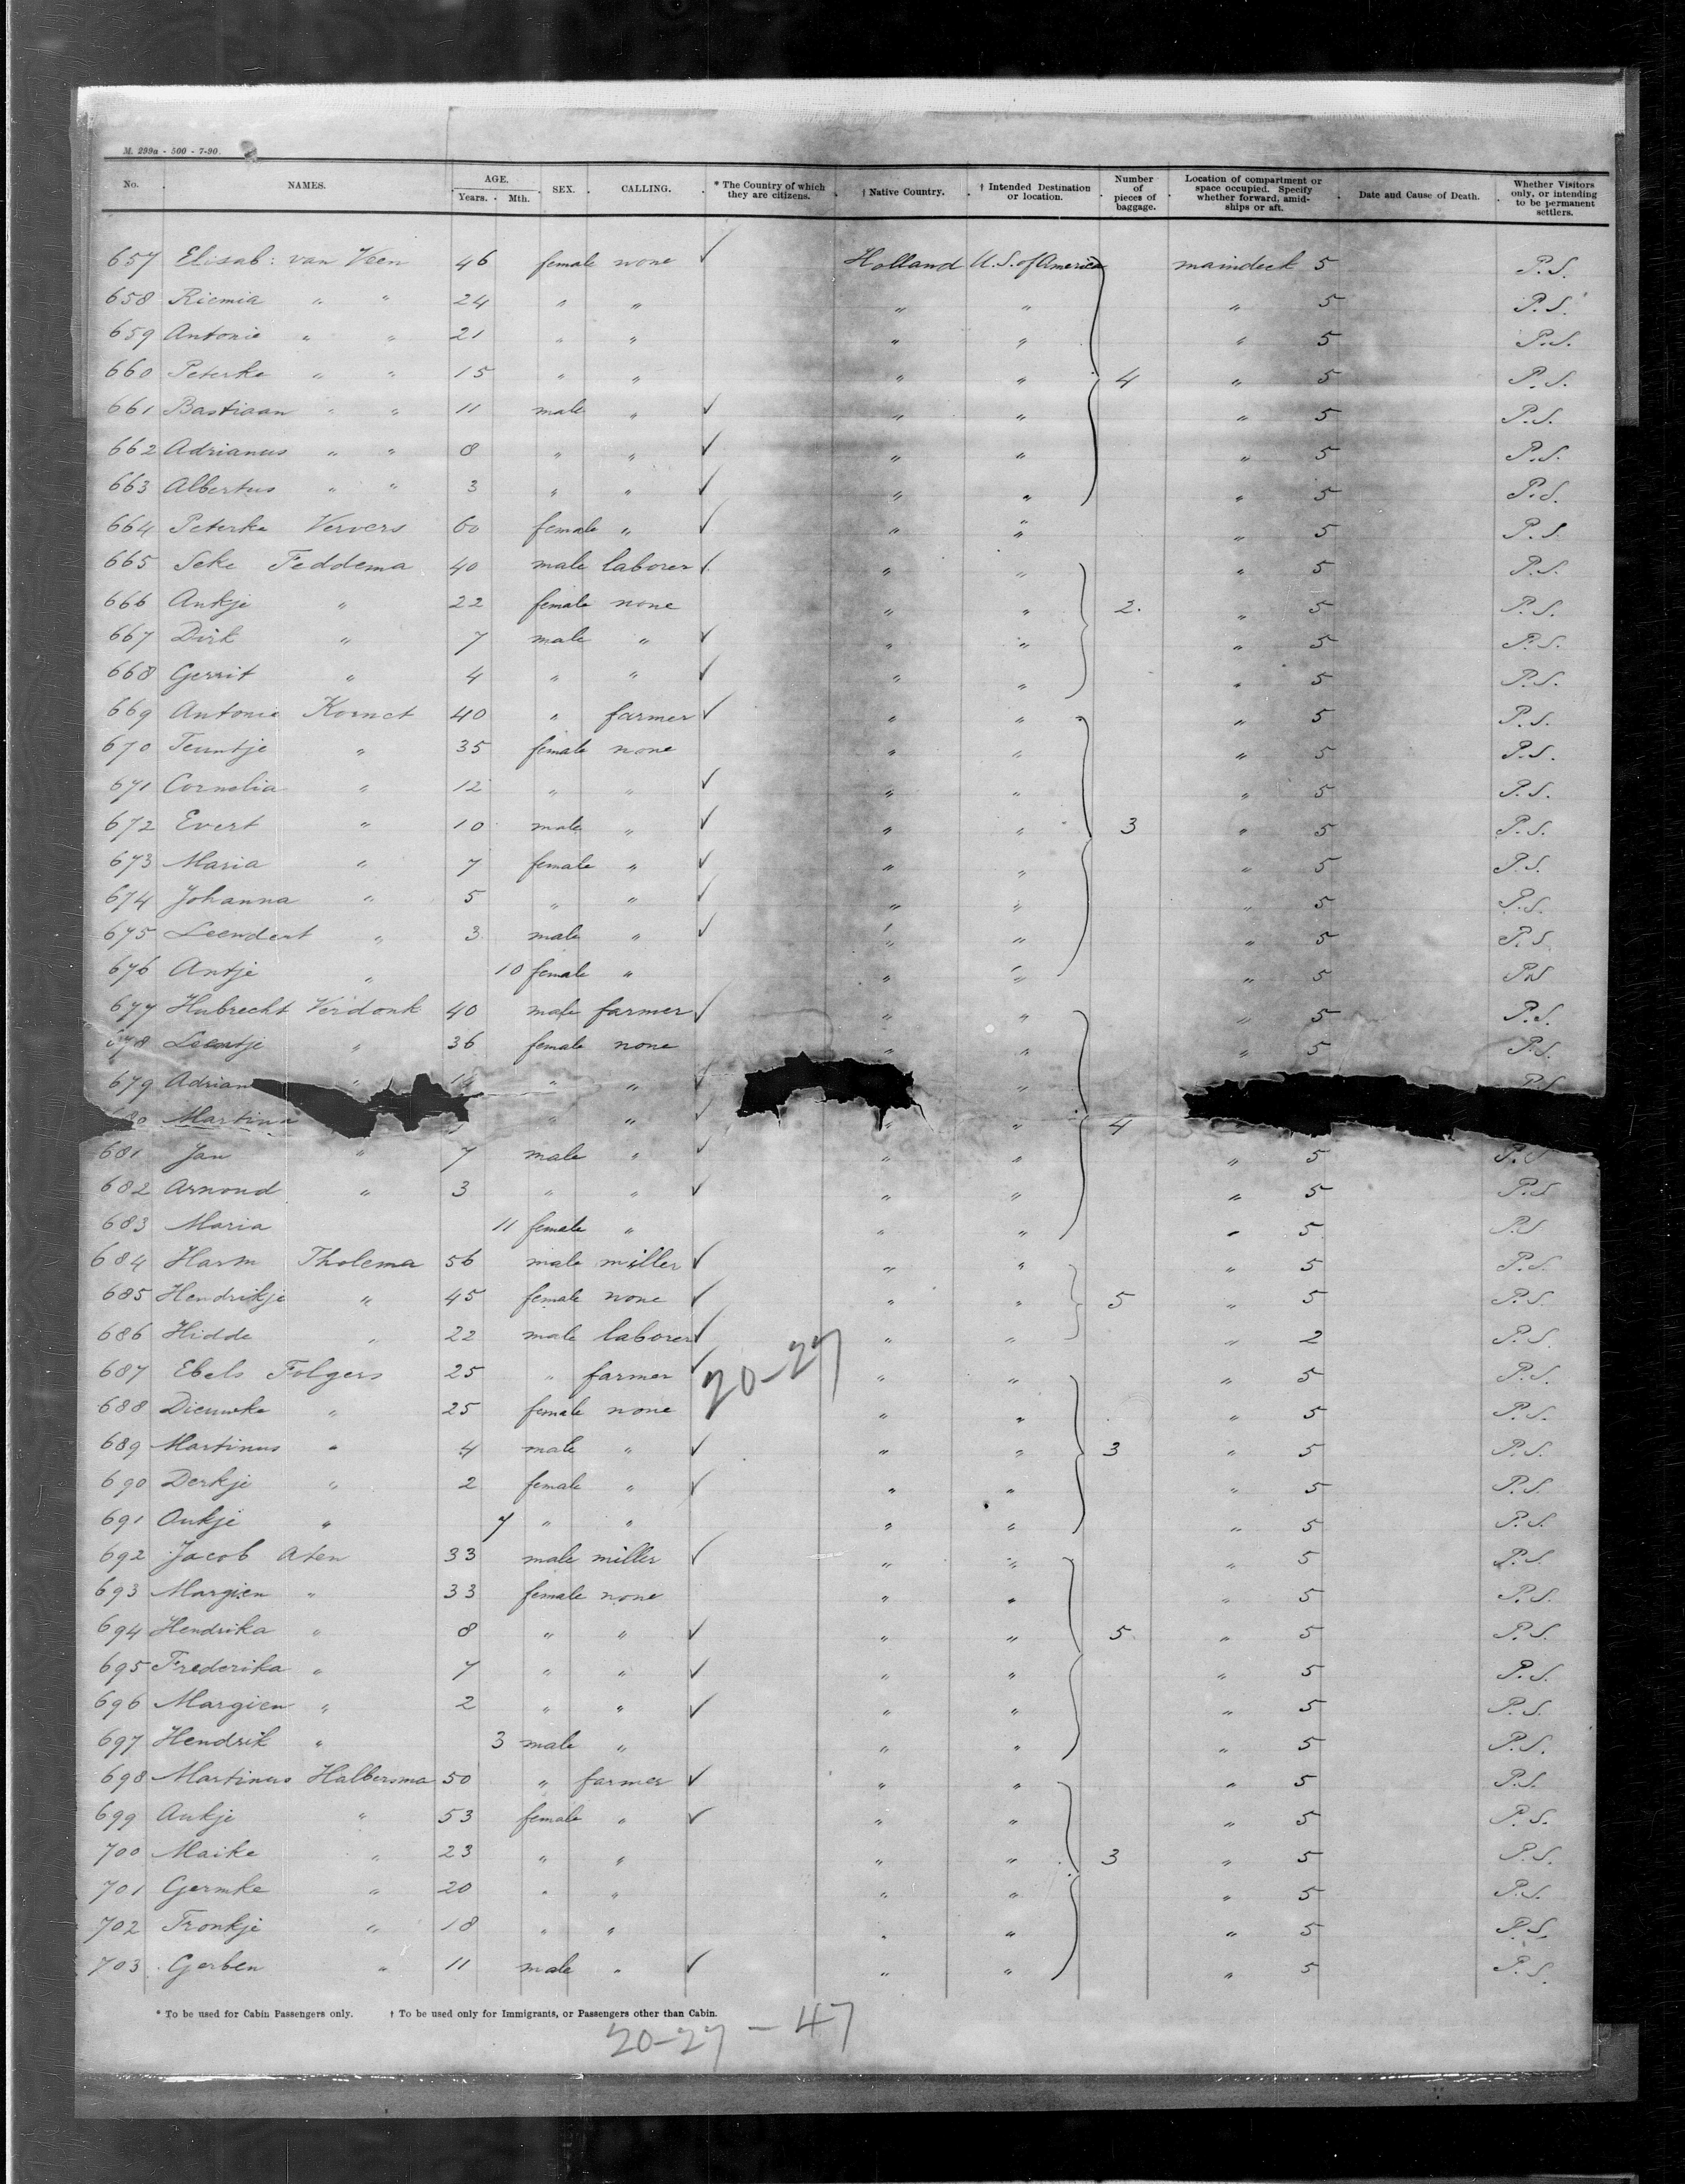 M. 299a - 500 - 7-90.
No. NAMES. AGE. Years. Mth. SEX. CALLING. * The Country of which they are citizens. † Native Country. † Intended Destination or location. Number of pieces of baggage. Location of compartment or space occupied. Specify whether forward, amidships or aft. Date and Cause of Death. Whether Visitors only, or intending to be permanent settlers.
657 Elisab: van Veen 46 female none ✓ Holland U.S. of America maindeck 5 P.S.
658 Riemia " " 24 " " " " " 5 P.S.
659 Antonie " " 21 " " " " " 5 P.S.
660 Peterke " " 15 " " " " 4 " 5 P.S.
661 Bastiaan " " 11 male " ✓ " " " 5 P.S.
662 Adrianus " " 8 " " ✓ " " " 5 P.S.
663 Albertus " " 3 " " ✓ " " " 5 P.S.
664 Peterke Ververs 60 female " ✓ " " " 5 P.S.
665 Seke Feddema 40 male laborer ✓ " " " 5 P.S.
666 Ankje " 22 female none " " 2. " 5 P.S.
667 Dirk " 7 male " ✓ " " " 5 P.S.
668 Gerrit " 4 " " ✓ " " " 5 P.S.
669 Antonie Kornet 40 " farmer ✓ " " " 5 P.S.
670 Teuntje " 35 female none " " " 5 P.S.
671 Cornelia " 12 " " ✓ " " " 5 P.S.
672 Evert " 10 male " ✓ " " 3 " 5 P.S.
673 Maria " 7 female " ✓ " " " 5 P.S.
674 Johanna " 5 " " ✓ " " " 5 P.S.
675 Leendert " 3 male " ✓ " " " 5 P.S
676 Antje " 10 female " " " " 5 P.S
677 Hubrecht Verdonk 40 male farmer ✓ " " " 5 P.S.
678 Leentje " 36 female none " " " 5 P.S.
679 Adrian " " " ✓ " P.S
80 Martina " " ✓ " " 4
681 Jan " 7 male " ✓ " " " 5 P.S
682 Arnoud " 3 " " ✓ " " " 5 P.S
683 Maria 11 female " " " " 5 P.S
684 Harm Tholema 56 male miller ✓ " " " 5 P.S.
685 Hendrikje " 45 female none ✓ " " 5 " 5 P.S.
686 Hidde " 22 male laborer ✓ " " " 2 P.S.
687 Ebels Folgers 25 " farmer ✓ 20-27 " " " 5 P.S.
688 Dieuwke " 25 female none " " " 5 P.S.
689 Martinus " 4 male " ✓ " " 3 " 5 P.S.
690 Derkje " 2 female " ✓ " " " 5 P.S.
691 Aukje " 7 " " " " " 5 P.S.
692 Jacob Aten 33 male miller ✓ " " " 5 P.S.
693 Margien " 33 female none " " " 5 P.S.
694 Hendrika " 8 " " ✓ " " 5 " 5 P.S.
695 Frederika " 7 " " ✓ " " " 5 P.S.
696 Margien " 2 " " ✓ " " " 5 P.S.
697 Hendrik " 3 male " " " " 5 P.S.
698 Martinus Halbersma 50 " farmer ✓ " " " 5 P.S.
699 Aukje " 53 female " ✓ " " " 5 P.S.
700 Maike " 23 " " " " 3 " 5 P.S.
701 Germke " 20 " " " " " 5 P.S.
702 Fronkje " 18 " " " " " 5 P.S.
703 Gerben " 11 male " ✓ " " " 5 P.S.
* To be used for Cabin Passengers only. † To be used only for Immigrants, or Passengers other than Cabin.
20-27 - 47